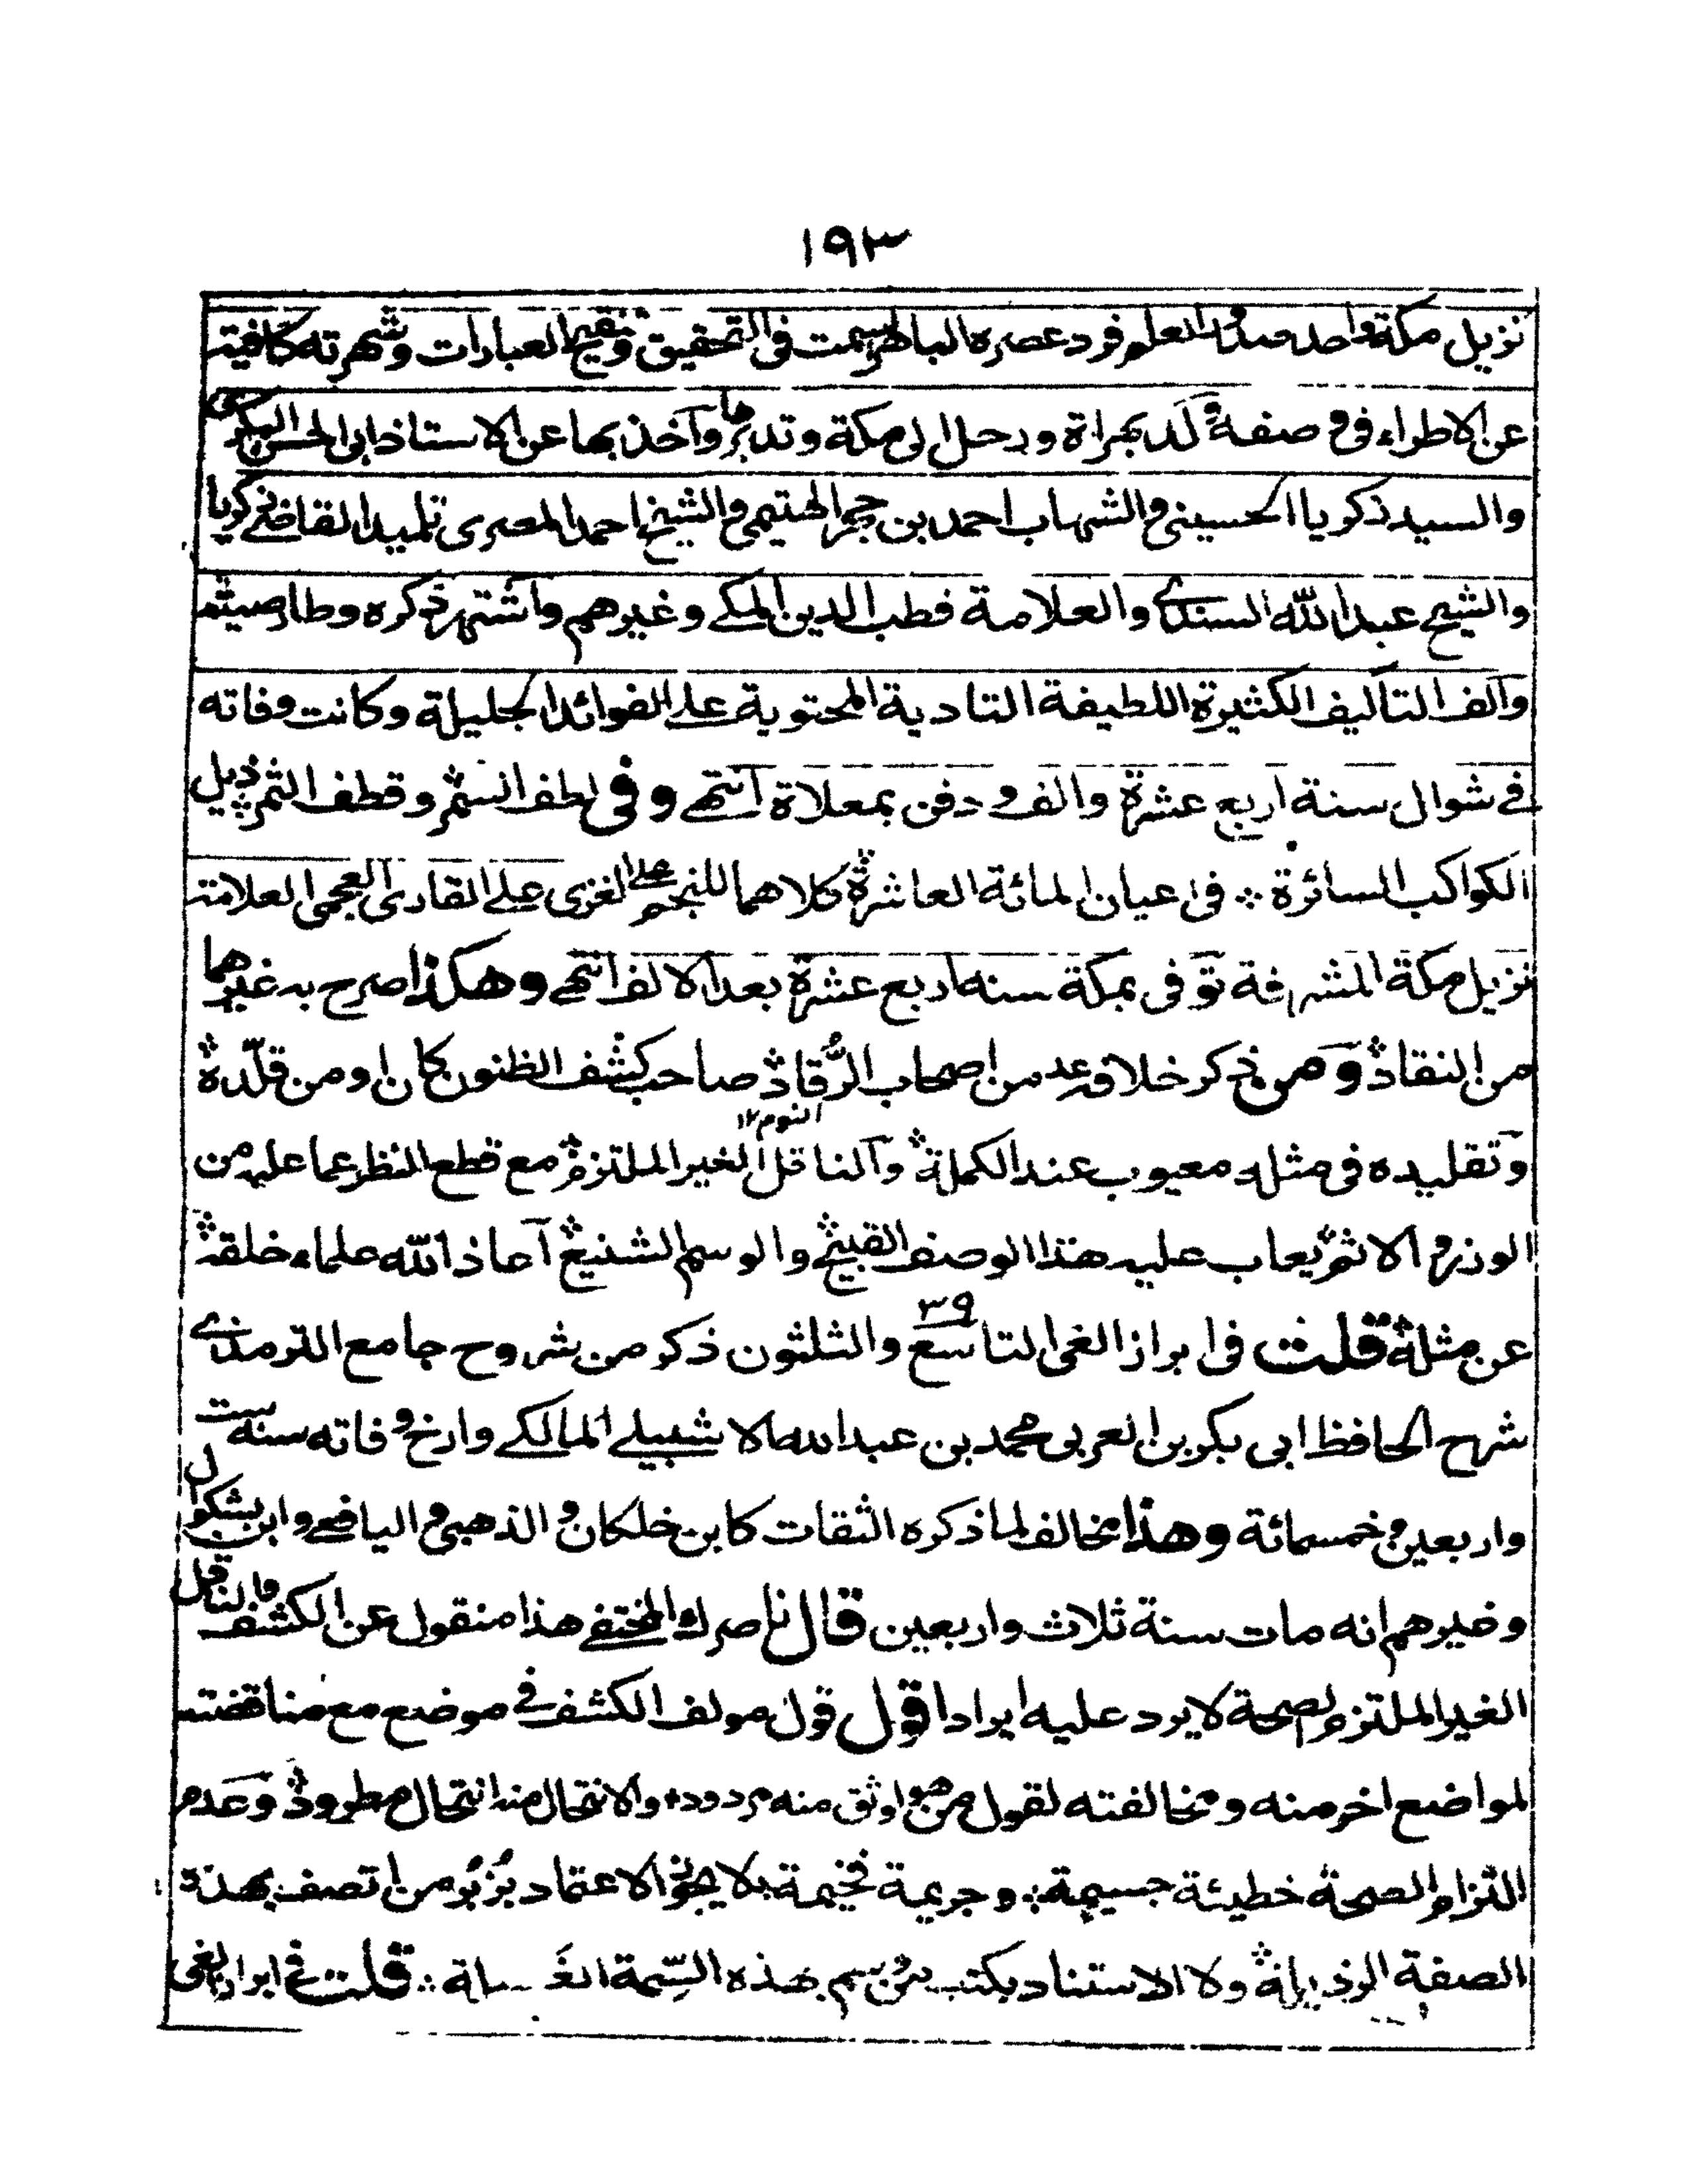 ١٩٣
نزيل مكة واحد صدور العلم فرد عصره الباهر السمت فى التحقيق وتنقيح العبارات وشهرته كافية
عن الاطراء فى وصفه ولد بهراة ورحل الى مكة وتديرها وآخذ بها عن الاستاذ ابى الحسن البكرى
والسيد ذكريا الحسينى والشهاب احمد بن حجر الهتيمى والشيخ احمد المصرى تلميذ القاضى زكريا
والشيخ عبد الله السندى والعلامة قطب الدين المكى وغيرهم واشتهر ذكره وطار صيته
وآلف التآليف الكثيرة اللطيفة التادية المحتوية على الفوائد الجليلة وكانت وفاته
فى شوال سنة اربع عشرة والف ودفن بمعلاة آنتهى وفى لطف السمر وقطف الثمر ذيل
الكواكب السائرة فى اعيان المائة العاشرة كلاهما للنجم الغزى على على القارى العجمى العلامة
نزيل مكة المشرفة توفى بمكة سنه اربع عشرة بعد الالف انتهى وهكذا صرح به غيرهما
من النقاد ومن ذكر خلافه عد من اصحاب الرُّقاد صاحب كشف الظنون كان او من قلّده
النوم ١٢
وتقليده فى مثله معيوب عند الكملة وآلناقل الغير الملتزم مع قطع النظر عما عليه من
الوزر والاثم يعاب عليه هذا الوصف القبيح والوسم الشنيع آعاذ الله علماء خلقه
عن مثله قلت فى ابراز الغى التاسع ٣٩ والثلثون ذكر من شروح جامع الترمذى
شرح الحافظ ابى بكر بن العربى محمد بن عبد الله الاشبيلى المالكى وارخ وفاته سنه ست
واربعين وخمسمائة وهذا مخالف لما ذكره الثقات كابن خلكان والذهبى واليافعى وابن بشكوال
وغيرهم انه مات سنة ثلاث واربعين قال ناصرك المختفى هذا منقول عن الكشف والناقل
الغير الملتزم لصحة لا يرد عليه ايراد اقول قول مولف الكشف فى موضع مع مناقضته
لمواضع اخر منه ومخالفته لقول من هو اوثق منه مردود والانتحال منه انتحال مطرود وعدم
التزام الصحة خطيئة جسيمة وجريمة فخيمة لا يجوز الاعتماد بزُبُر من اتصف بهذه
الصفة الرذيلة ولا الاستناد بكتب من وسم بهذه السِّمة قلت فى ابراز الغى